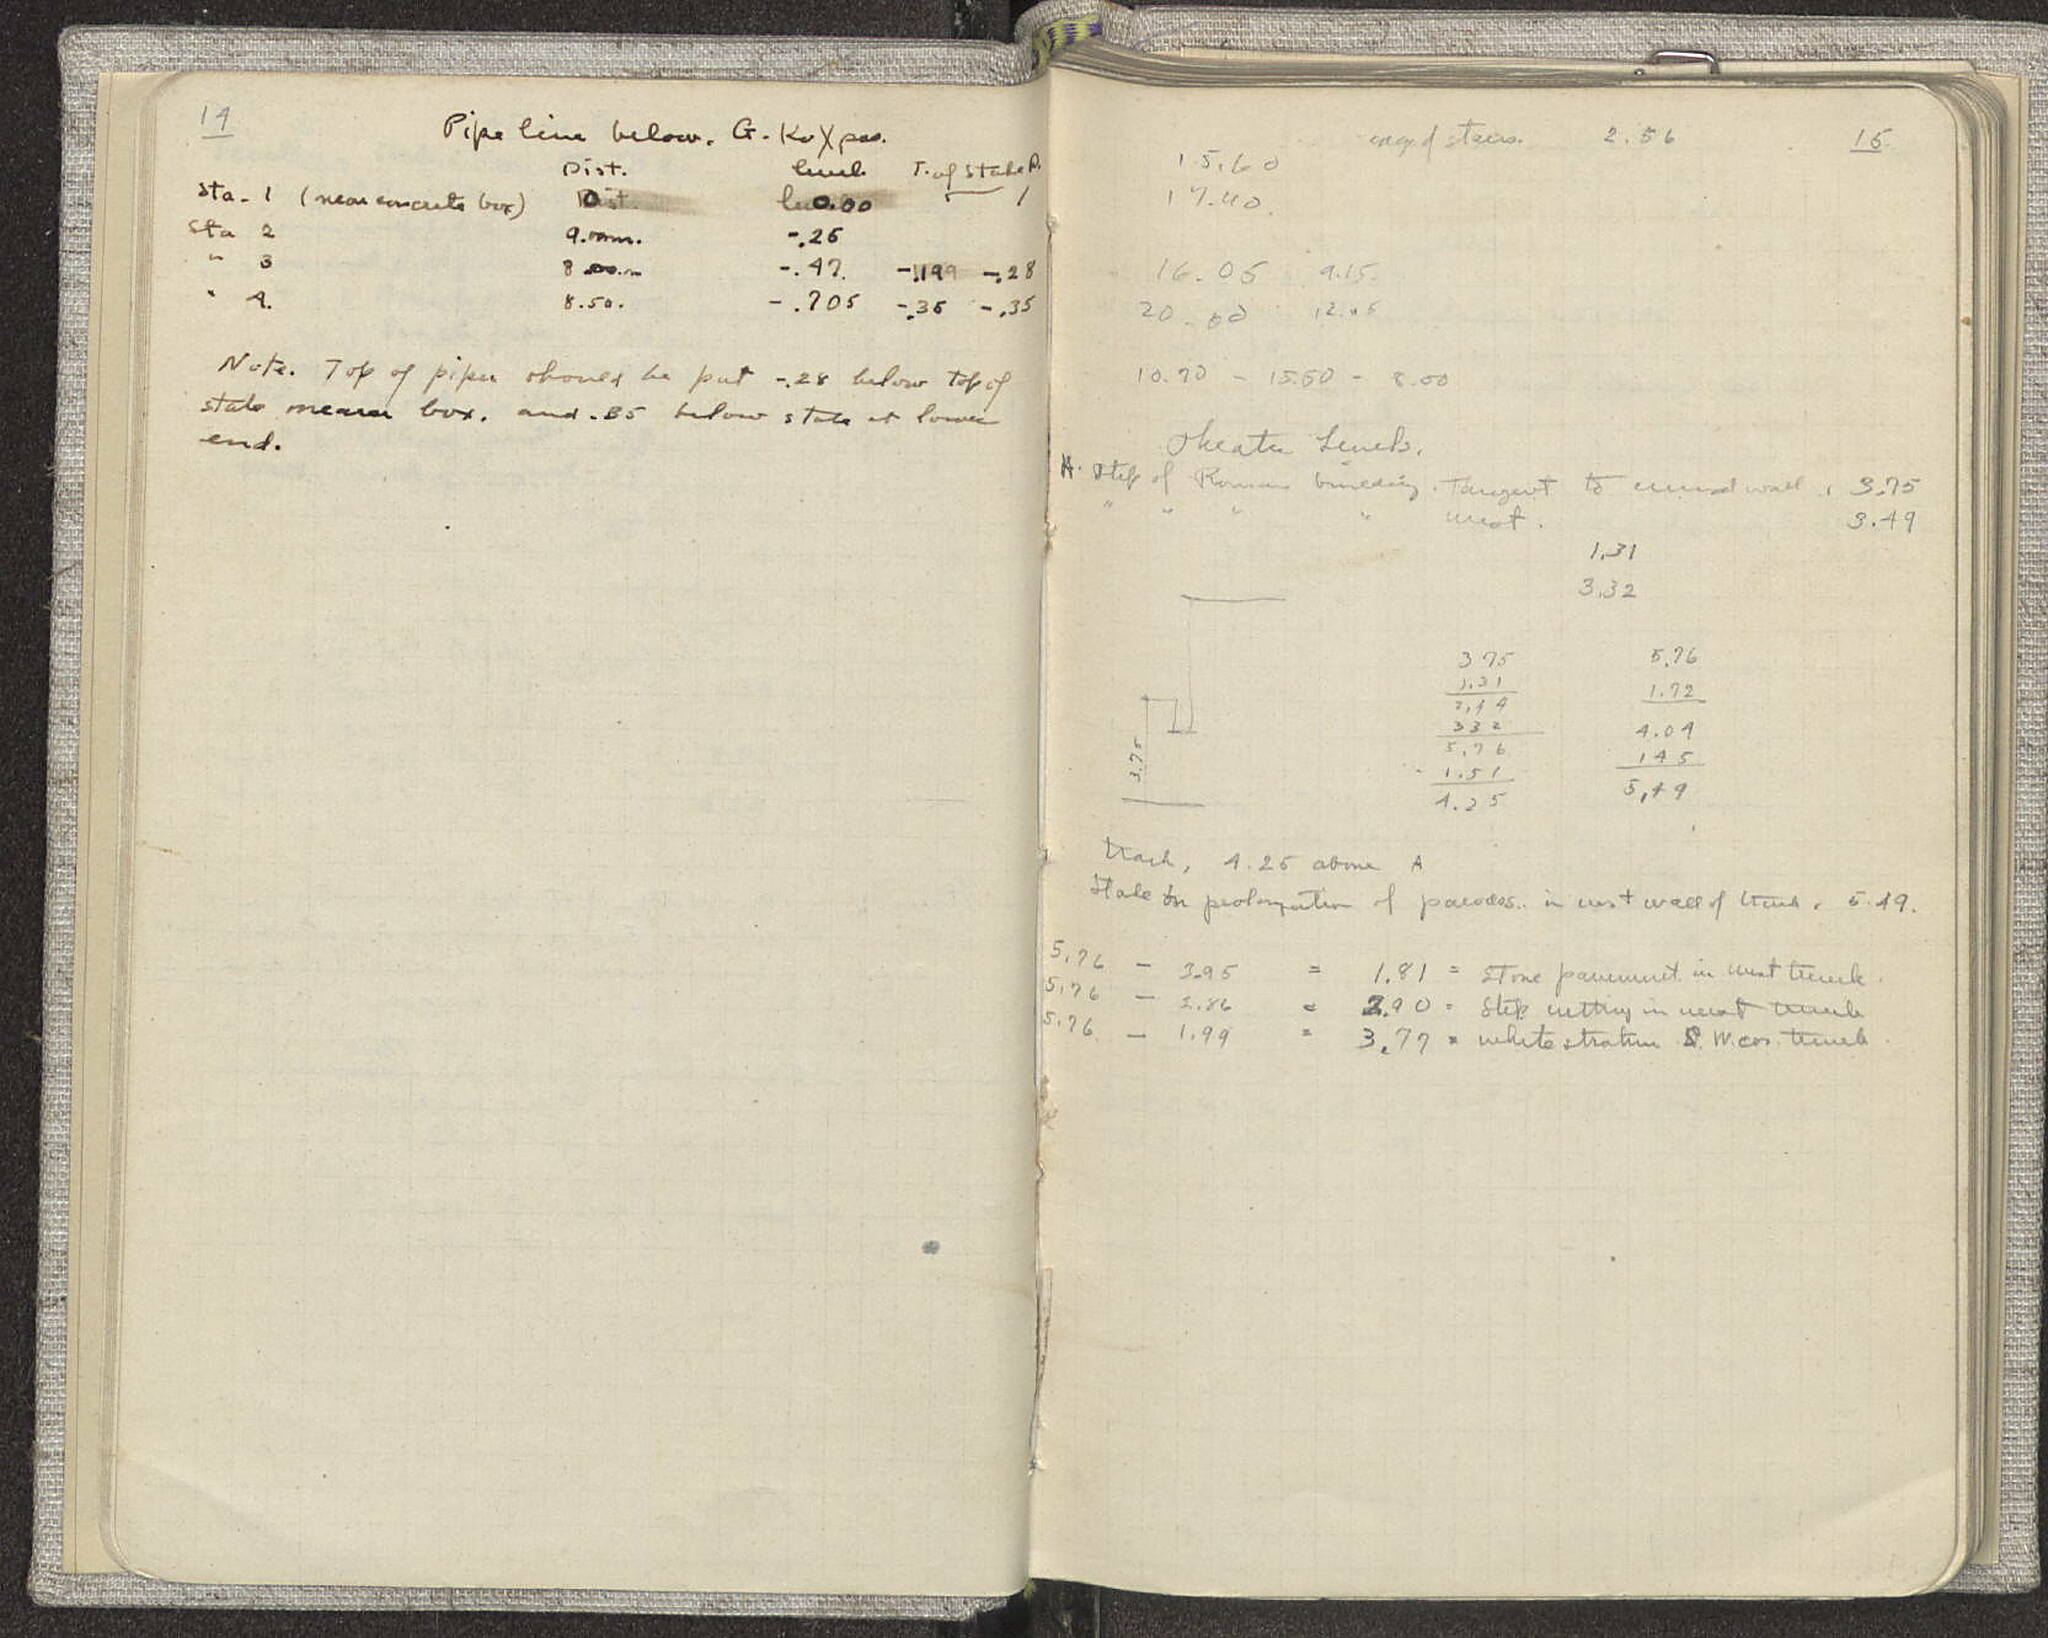 14
Pipe line below. G. Ko
Dist. level T. of Stake P.
Sta. 1 (near concrete box) 0 0.00
Sta 2 9.00m. -.25
" 3 8.00m -.47. -.199 -.28
" 4. 8.50. -.705 -.35 -.35
Note. Top of pipe should be put -.28 below top of
stake nearer box. and .35 below stake at lower
end.
edge of stairs. 2.56 15
15.60
17.40.
16.05 9.15
20.00 12.45
10.70 - 15.50 - 8.00
Theater Levels.
A. Step of Roman building. Tangent to curved wall. 3.75
" " " " west. 3.49
1.31
3.32
3.75 5.76
1.31 1.72
2.44 4.04
332 145
5.76 5.49
1.51
4.25
3.75
track, 4.25 above A
Stake in prolongation of parodos. in west wall of trench. 5.49.
5.76 - 3.95 = 1.81 = stone pavement in west trench.
5.76 - 2.86 = 2.90 = step cutting in west trench
5.76. - 1.99 = 3.77 = white stratum S.W. cor. trench.